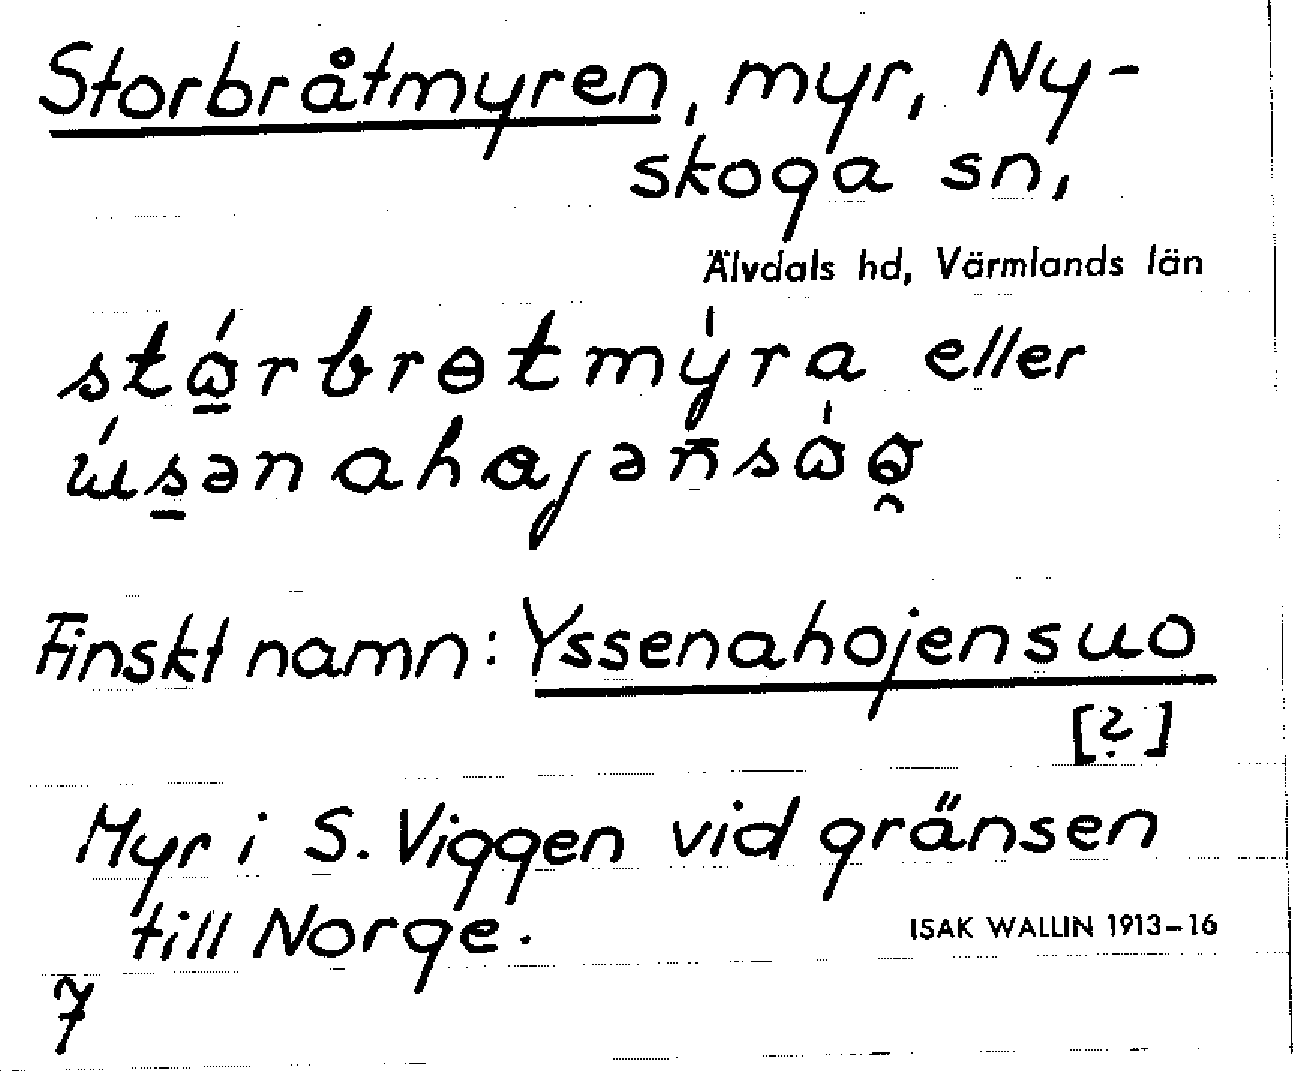 Storbråtmyren, myr, Ny-
skoga sn,
Älvdals hd, Värmlands län
eller
Finskt namn: Yssenahojensuo
[?]
Myr i S. Viggen vid gränsen
till Norge.
ISAK WALLIN 1913-16
7